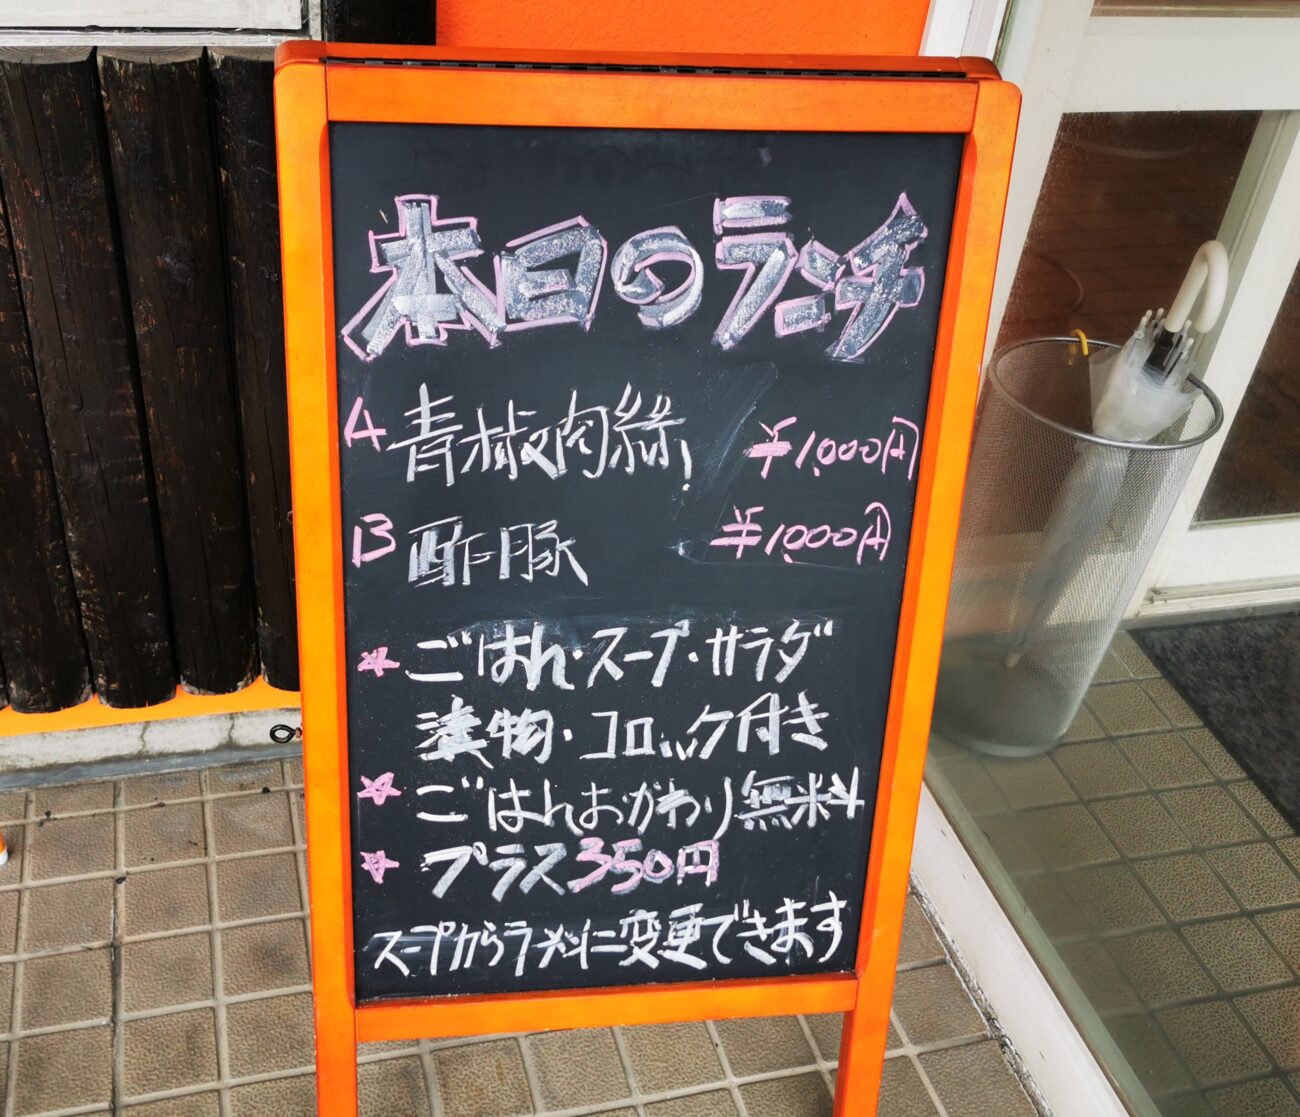 本日のランチ
A 青椒肉絲 ¥1,000円
B 酢豚 ¥1,000円
☆ ごはん・スープ・サラダ
漬物・コロッケ付き
☆ ごはんおかわり無料
☆ プラス350円
スープからラーメンに変更できます